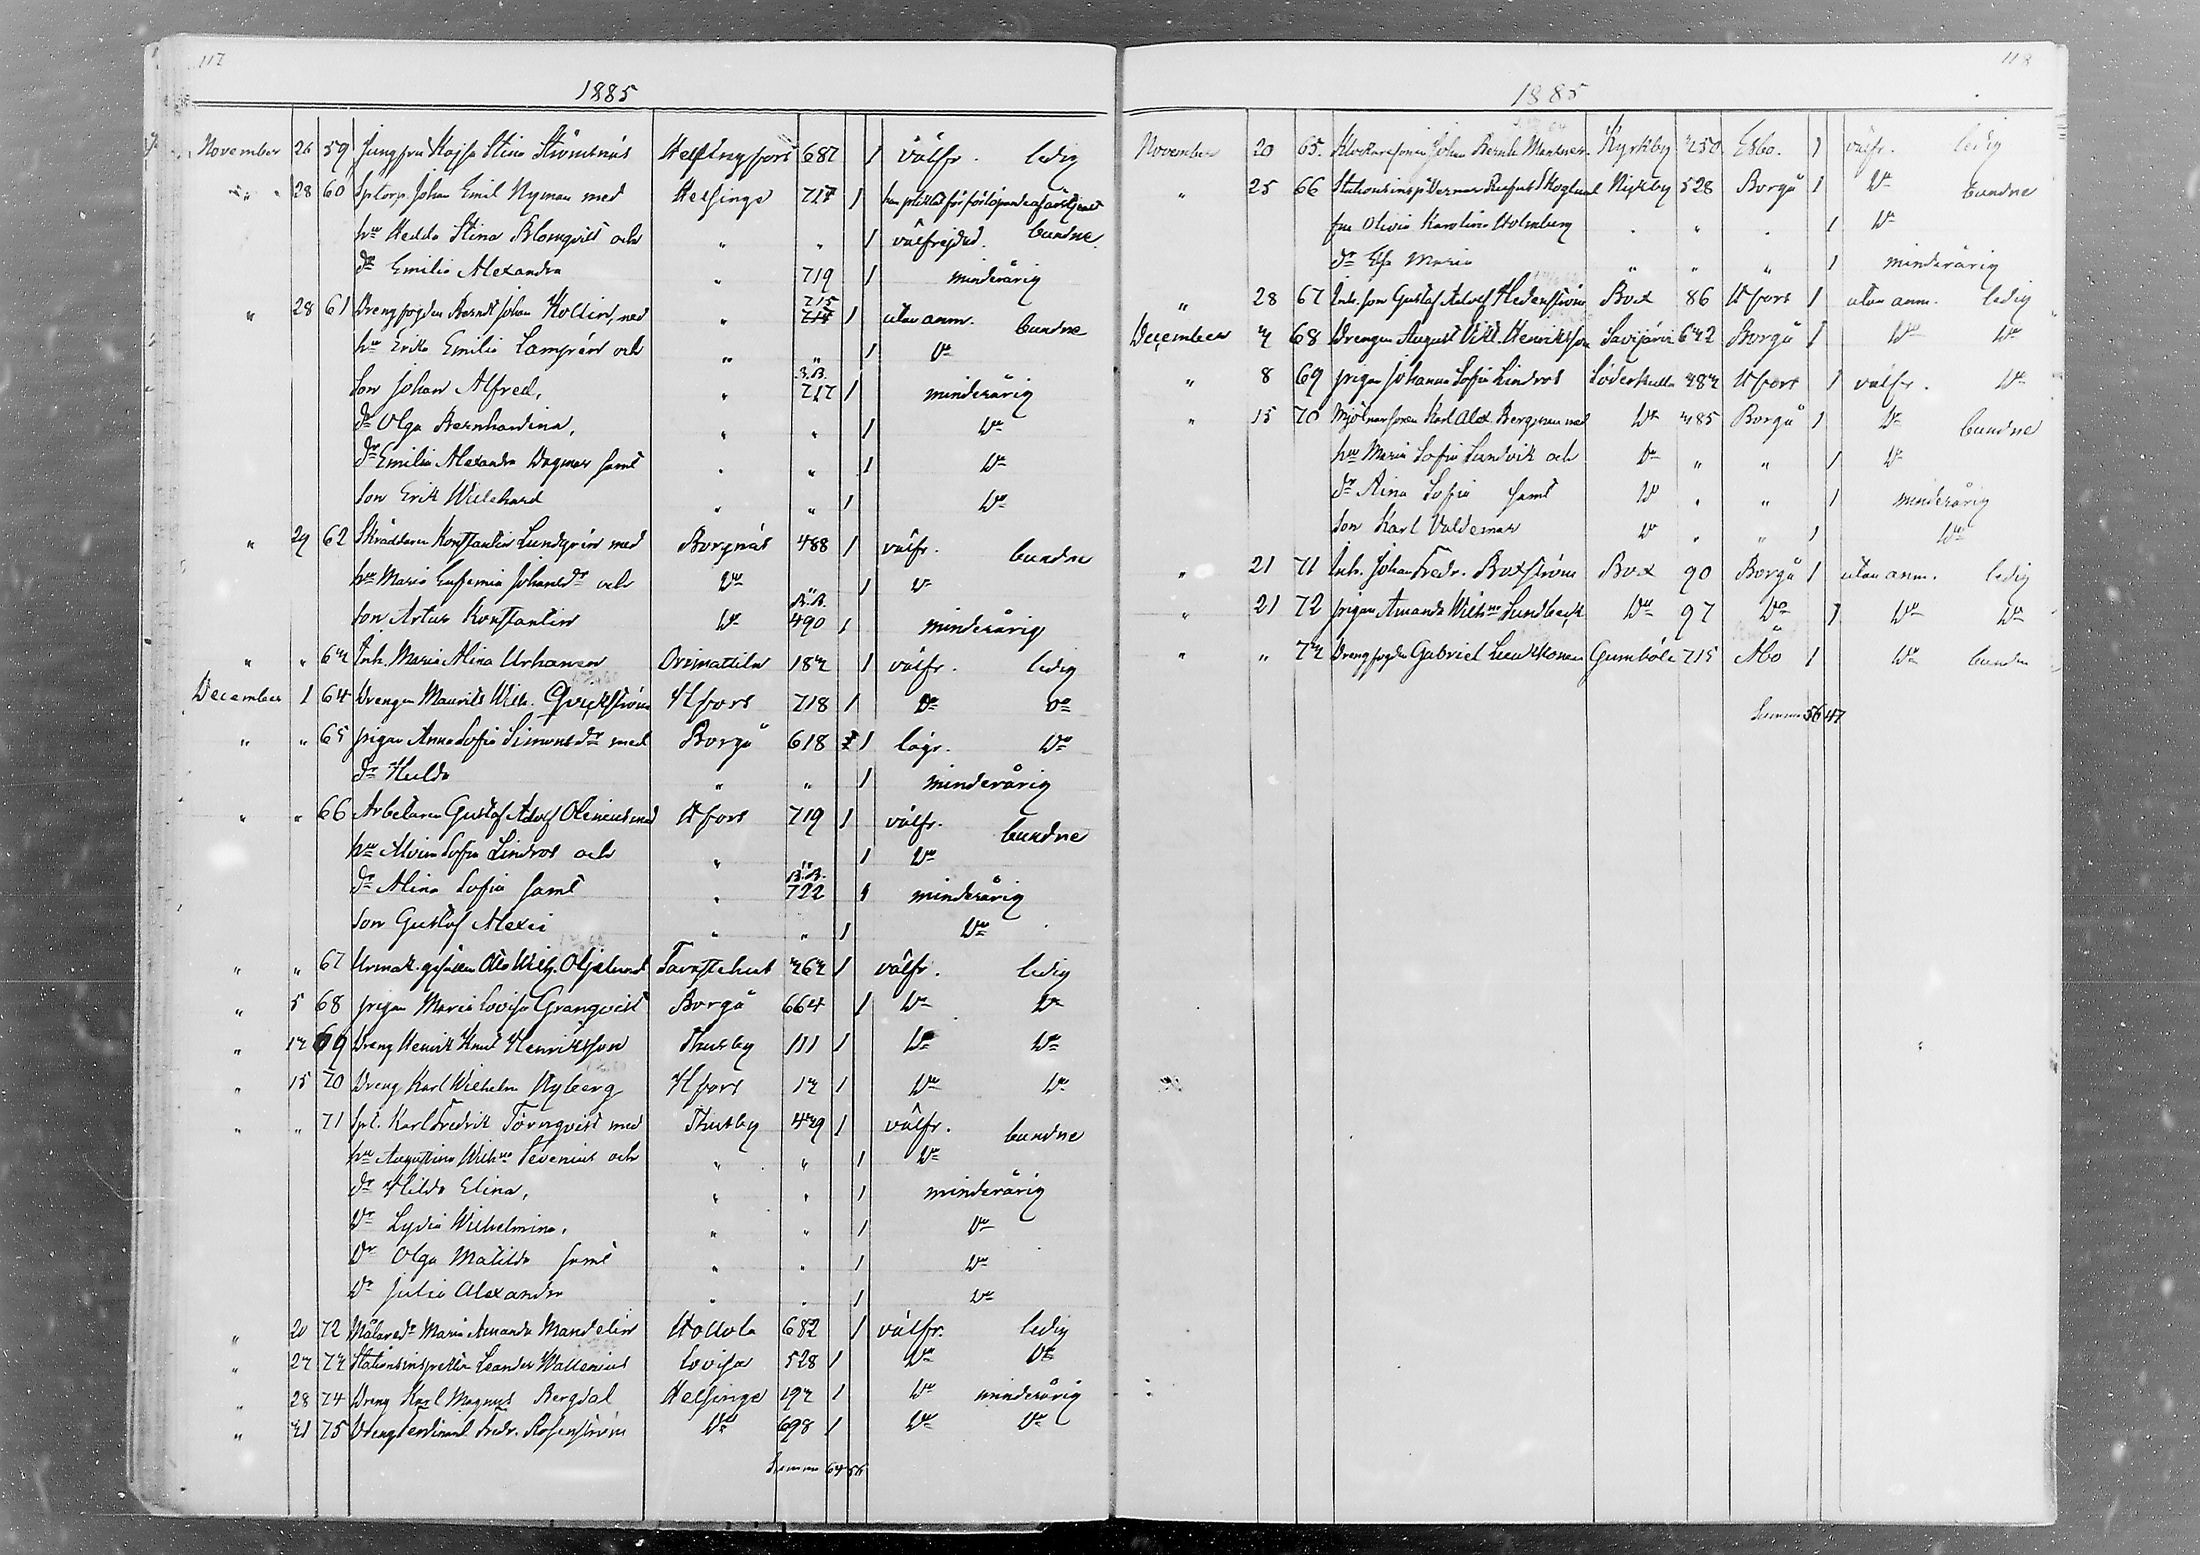 117
1885
November 26 59 Jungfru Kajsa Stina Strömsnäs Helsingfors 687 1 välfr. ledig
" 28 60 Sptorp. Johan Emil Nyman med Helsinge 717 1
hu Hedda Stina Blomqvist och " " 1 välfrejdad. bundne.
dr Emilia Alexandra " 719 1 minderårig
" 28 61 Drengfogden Berndt Johan Kollin, med " 715 1 utan anm. bundne
hu Erika Emilia Lamprén och " " 1 Do
Son Johan Alfred, " B.B. 717 1 minderårig
dr Olga Bernhardina, " " 1 Do
dr Emilia Alexandra Dagmar samt " " 1 Do
Son Erik Willehard " " 1 Do
" 29 62 Skräddaren Konstantin Lundgrén med Borgnäs 488 1 välfr. bundne
hu Maria Eufemia Johansdr och Do " 1 Do
son Artur Konstantin Do B.B. 490 1 minderårig
" " 63 Inh. Maria Alina Urhanen Orimattila 183 1 välfr. ledig
December 1 64 Drengen Maurits Wilh. Qvickström Hfors 718 1 Do Do
" " 65 pigan Anna Sofia Simonsdr med Borgå 618 1 lägr. Do
dr Hulda " " 1 minderårig
" " 66 Arbetaren Gustaf Adolf Olenius med Hfors 719 1 välfr. bundne
hu Alvina Sofia Lindros och " " 1 Do
dr Alina Sofia samt " B.B. 722 1 minderårig
Son Gustaf Alexei " " 1 Do
" " 67 Urmak. gesällen Otto Wilh. Öljelund Tavastehus 363 1 välfr. ledig
" 5 68 pigan Maria Lovisa Granqvist Borgå 664 1 Do Do
" 13 69 Dreng Henrik Knut Henriksson Thusby 111 1 Do Do
" 15 70 Dreng Karl Wilhelm Nyberg Hfors 13 1 Do Do
" " 71 Spt. Karl Fredrik Törnqvist med Thusby 439 1 välfr. bundne
hu Augustina Wilhna Sevenius och " " 1 Do
dr Hilda Elina, " " 1 minderårig
Dr Lydia Wilhelmina, " " 1 Do
Dr Olga Matilda samt " " 1 Do
Dr Julia Alexandra " " 1 Do
" 20 72 Målaredr Maria Amanda Mandelin Hollola 682 1 välfr. ledig
" 23 73 Stationsinspektör Leander Wallenius Lovisa 528 1 Do Do
" 28 74 Dreng Karl Magnus Bergdal Helsinge 193 1 Do minderårig
" 31 75 Dreng Ferdinand Fredr. Rosenström Do 698 1 Do Do
Summa 64 56
118
1885
November 20 65. Klockaresonen Johan Bernh. Kyrkby 350 Esbo. 1 välfr. ledig
" 25 66 Stationsinsp. Verner Rufus Skoglund Nickby 528 Borgå 1 Do bundne
fru Olivia Karolina Holmberg " " " 1 Do
dr Elsa Maria " " " 1 minderårig
" 28 67 Inh. son Gustaf Adolf Hedenström Box 86 Hfors 1 utan anm. ledig
December 3 68 Drengen August Vikt. Henriksson Savijärvi 632 Borgå 1 Do Do
" 8 69 pigan Johanna Sofia Lindros Söderkulla 383 Hfors 1 välfr. Do
" 15 70 Mjölnarson Karl Alex Bergman med Do 385 Borgå 1 Do bundne
hu Maria Sofia Lundvik och Do " " 1 Do
dr Aina Sofia samt Do " " 1 minderårig
son Karl Valdemar Do " " 1 Do
" 21 71 Inh. Johan Fredr. Boxström Box 90 Borgå 1 utan anm. ledig
" 21 72 pigan Amanda Wilhna Lundbeck Do 97 Do 1 Do Do
" " 73 Drengfogden Gabriel Leukkonen Gumböle 715 Åbo 1 Do bunden
Summa 56 47